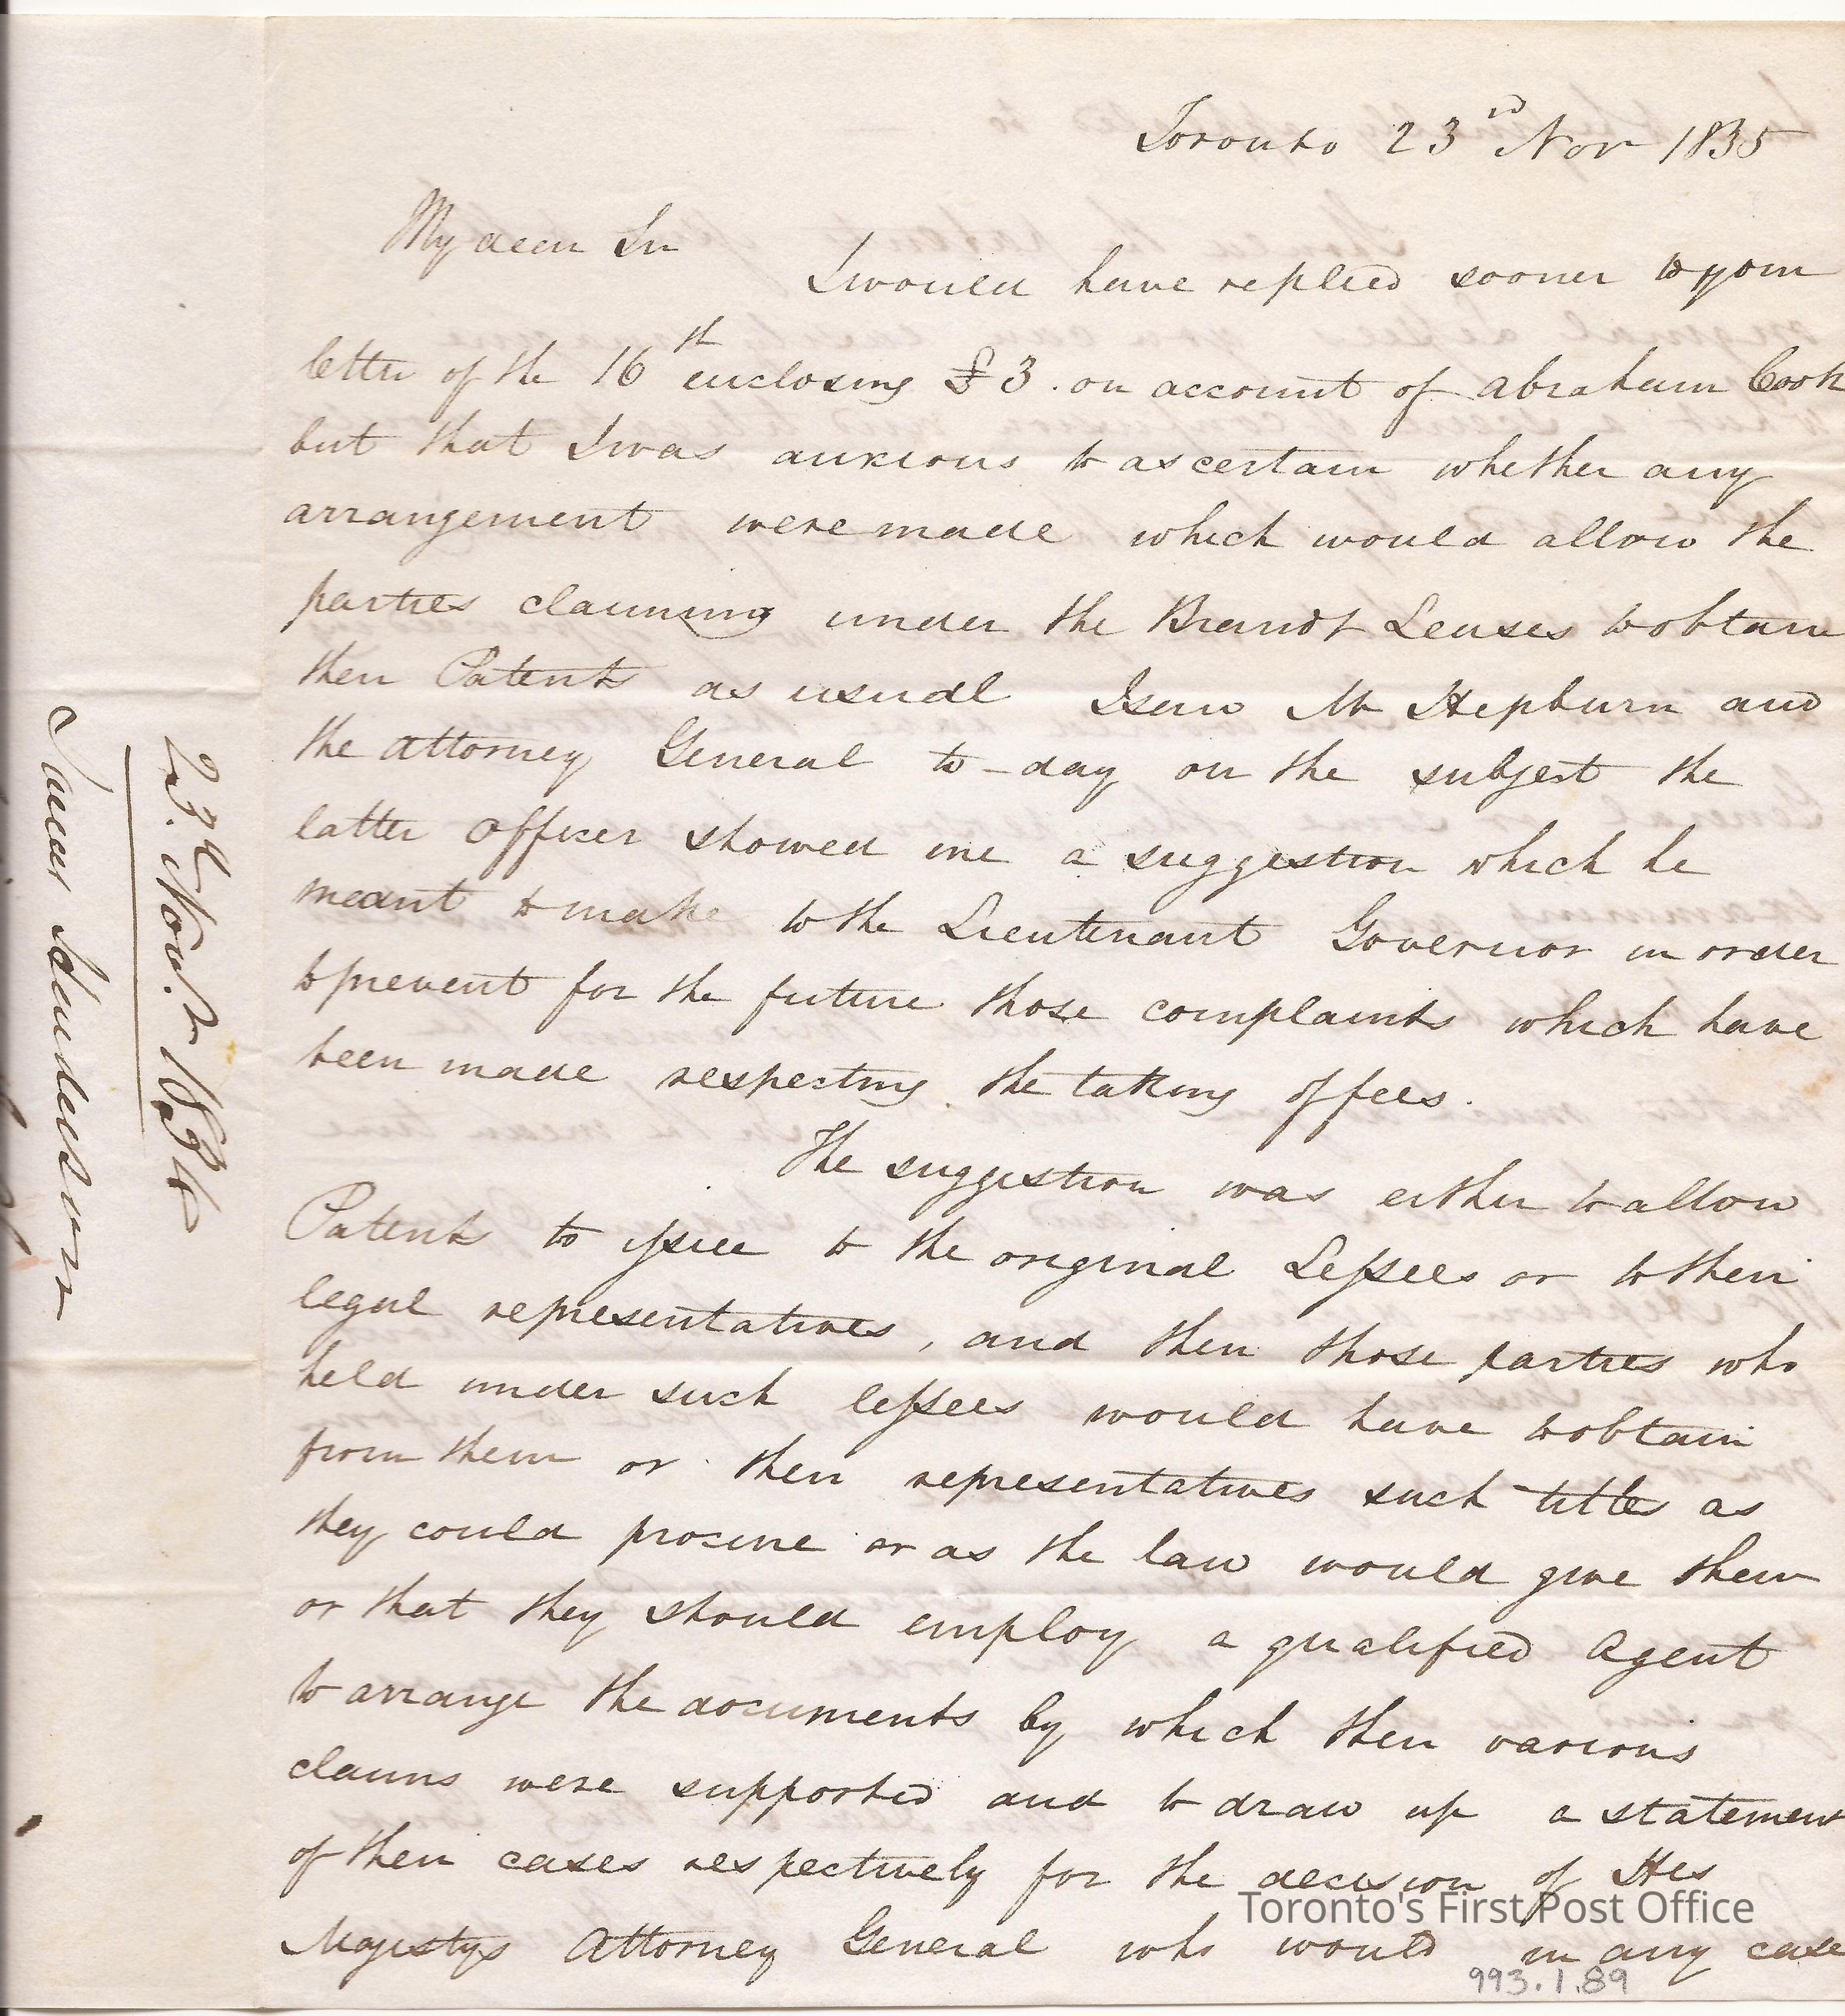 Toronto 23rd Nov 1835
My dear Sir
I would have replied sooner to your
letter of the 16th enclosing £3. on account of Abraham Cook
but that I was anxious to ascertain whether any
arrangement were made which would allow the
parties claiming under the Brandt Leases to obtain
their Patents as usual I saw Mr Hepburn and
the Attorney General to-day on the subject the
latter officer showed me a suggestion which he
meant to make to the Lieutenant Governor in order
to prevent for the future those complaints which have
been made respecting the taking of fees.
The suggestion was either to allow
Patents to issue to the original Lessees or to their
legal representatives, and then those parties who
held under such lessees would have to obtain
from them or their representatives such titles as
they could procure or as the law would give them
or that they should employ a qualified Agent
to arrange the documents by which their various
claims were supported and to draw up a statement
of their cases respectively for the decision of His
Majestys Attorney General who would in any case
23.d Novr 183
Toronto's First Post Office
993.1.89